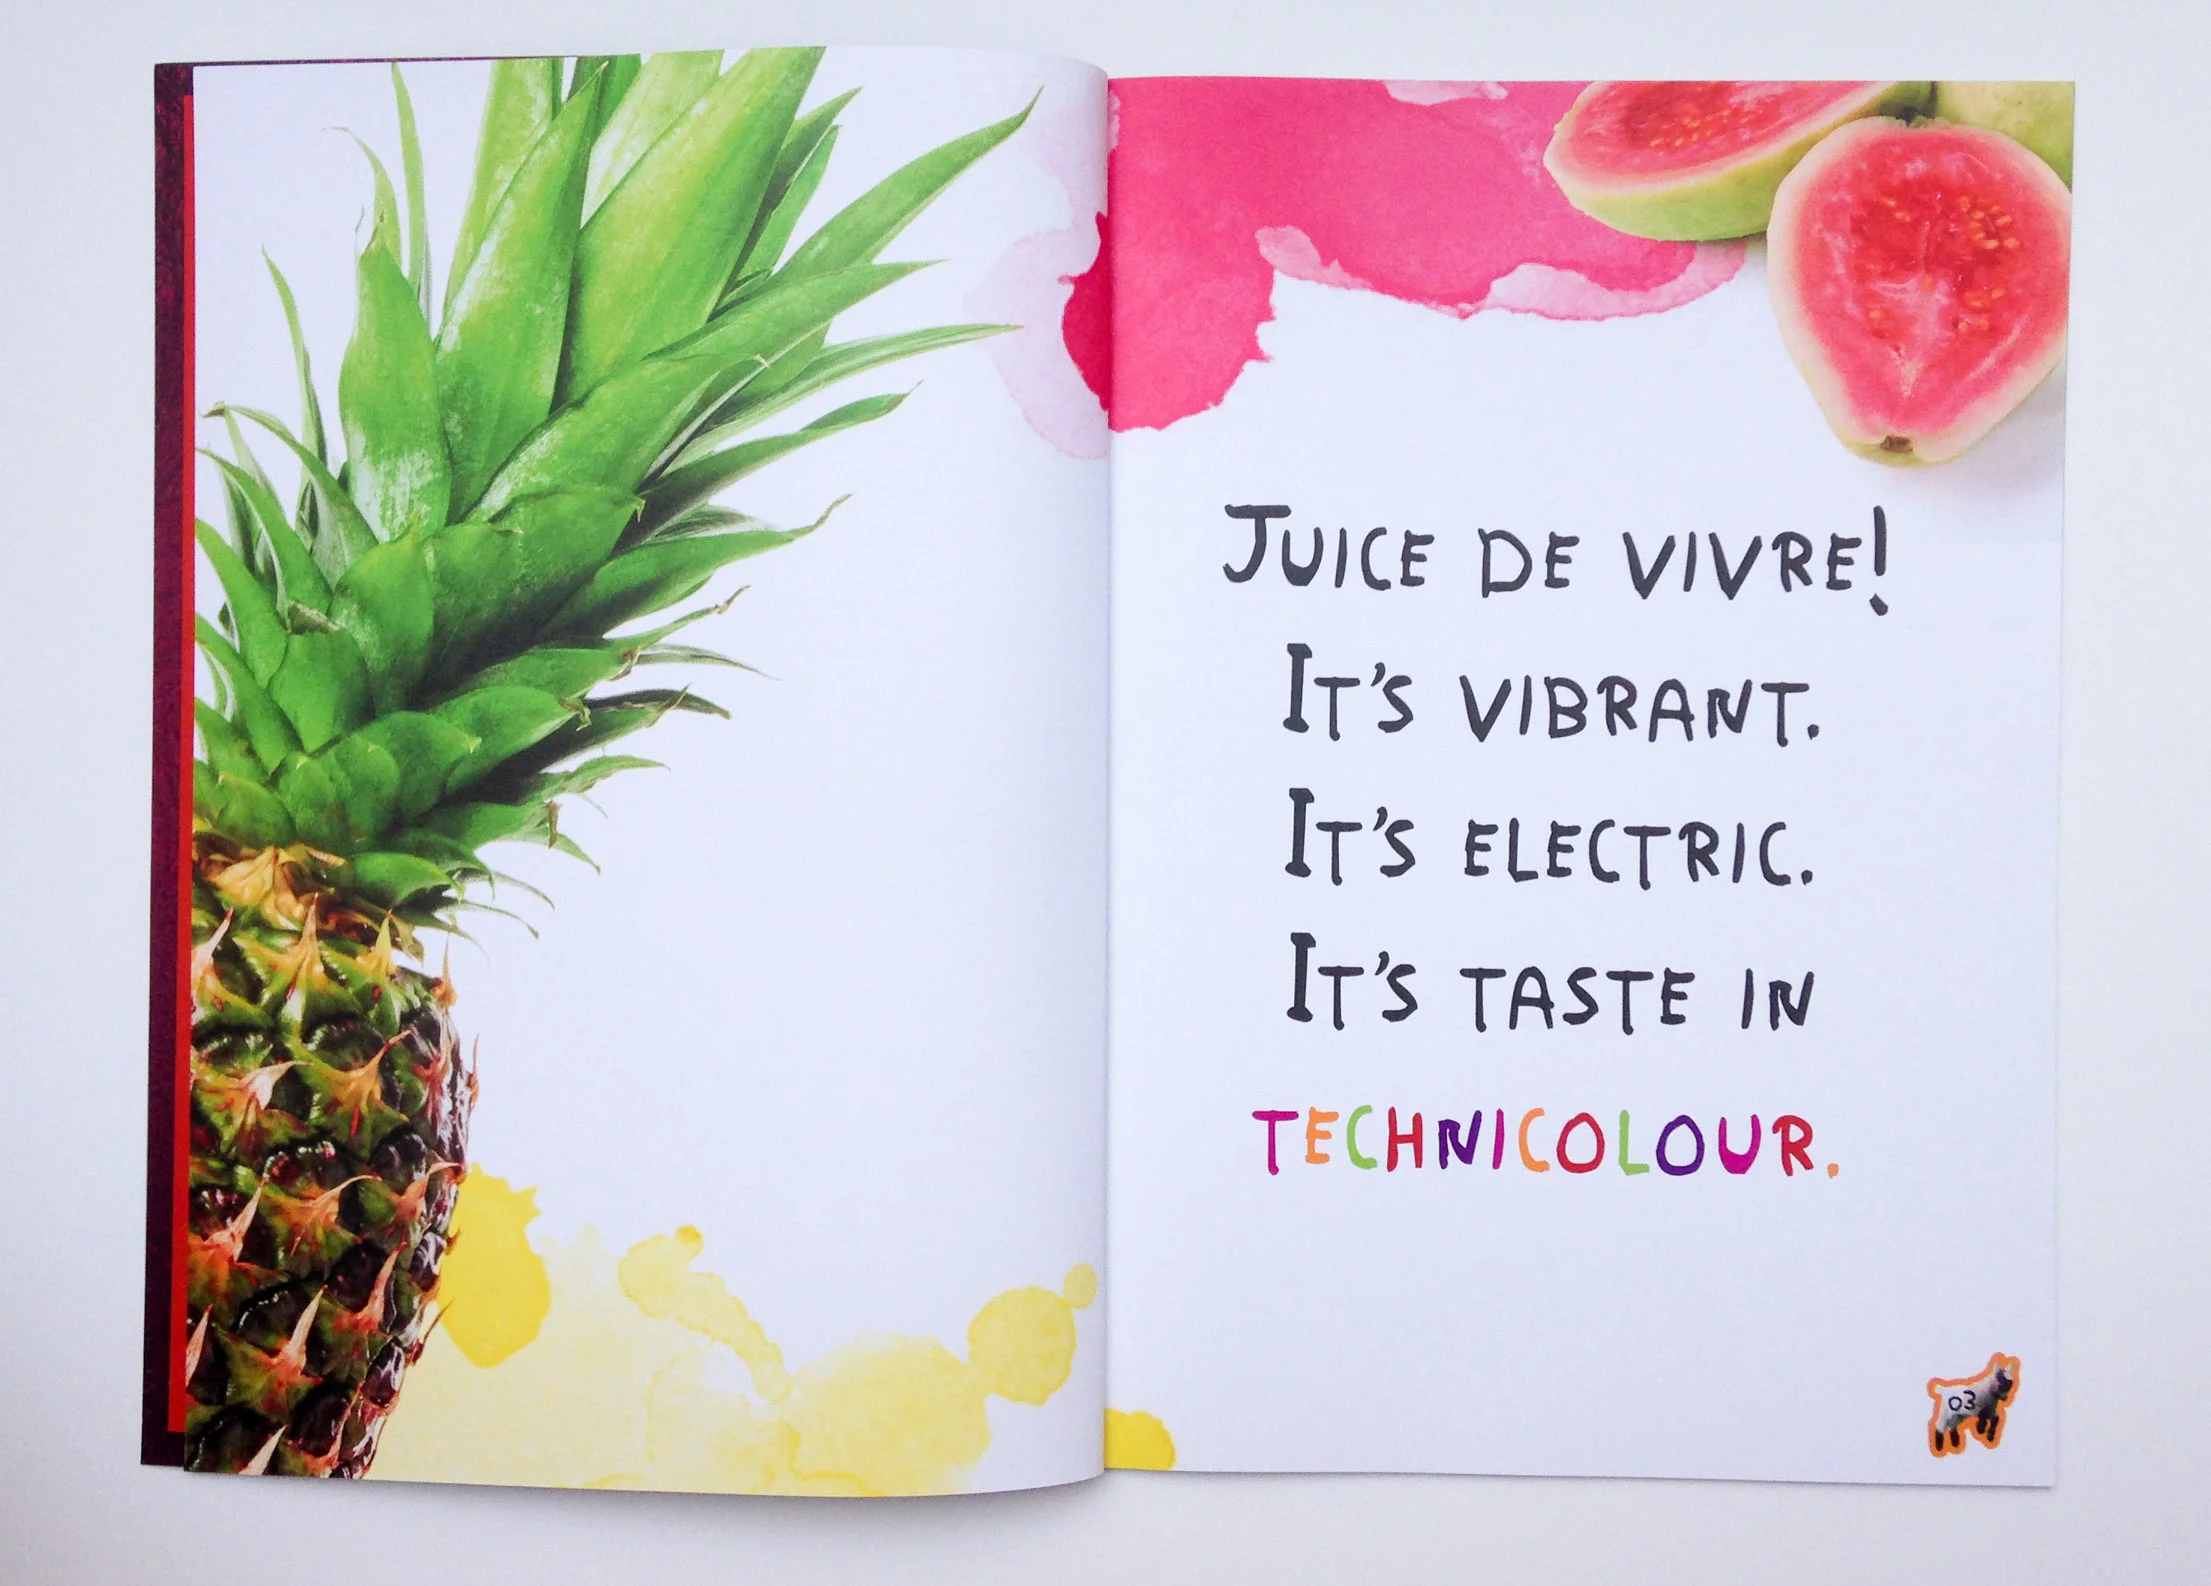 JUICE DE VIVRE!
IT'S VIBRANT.
IT'S ELECTRIC.
IT'S TASTE IN
TECHNICOLOUR.
03